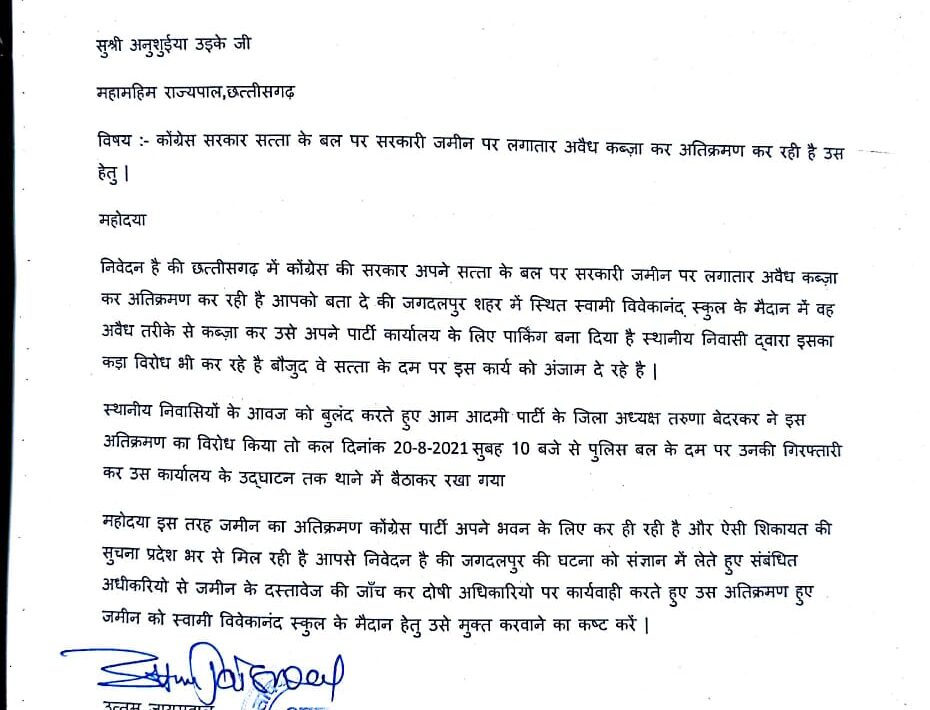 सुश्री अनुशुईया उइके जी
महामहिम राज्यपाल,छत्तीसगढ़
विषय :- कोंग्रेस सरकार सत्ता के बल पर सरकारी जमीन पर लगातार अवैध कब्ज़ा कर अतिक्रमण कर रही है उस
हेतु |
महोदया
निवेदन है की छत्तीसगढ़ में कोंग्रेस की सरकार अपने सत्ता के बल पर सरकारी जमीन पर लगातार अवैध कब्ज़ा
कर अतिक्रमण कर रही है आपको बता दे की जगदलपुर शहर में स्थित स्वामी विवेकानंद स्कुल के मैदान में वह
अवैध तरीके से कब्ज़ा कर उसे अपने पार्टी कार्यालय के लिए पार्किंग बना दिया है स्थानीय निवासी द्वारा इसका
कड़ा विरोध भी कर रहे है बौजुद वे सत्ता के दम पर इस कार्य को अंजाम दे रहे है |
स्थानीय निवासियों के आवज को बुलंद करते हुए आम आदमी पार्टी के जिला अध्यक्ष तरुणा बेदरकर ने इस
अतिक्रमण का विरोध किया तो कल दिनांक 20-8-2021 सुबह 10 बजे से पुलिस बल के दम पर उनकी गिरफ्तारी
कर उस कार्यालय के उद्घाटन तक थाने में बैठाकर रखा गया
महोदया इस तरह जमीन का अतिक्रमण कोंग्रेस पार्टी अपने भवन के लिए कर ही रही है और ऐसी शिकायत की
सुचना प्रदेश भर से मिल रही है आपसे निवेदन है की जगदलपुर की घटना को संज्ञान में लेते हुए संबंधित
अधीकरियो से जमीन के दस्तावेज की जाँच कर दोषी अधिकारियो पर कार्यवाही करते हुए उस अतिक्रमण हुए
जमीन को स्वामी विवेकानंद स्कुल के मैदान हेतु उसे मुक्त करवाने का कष्ट करें |
उत्तम